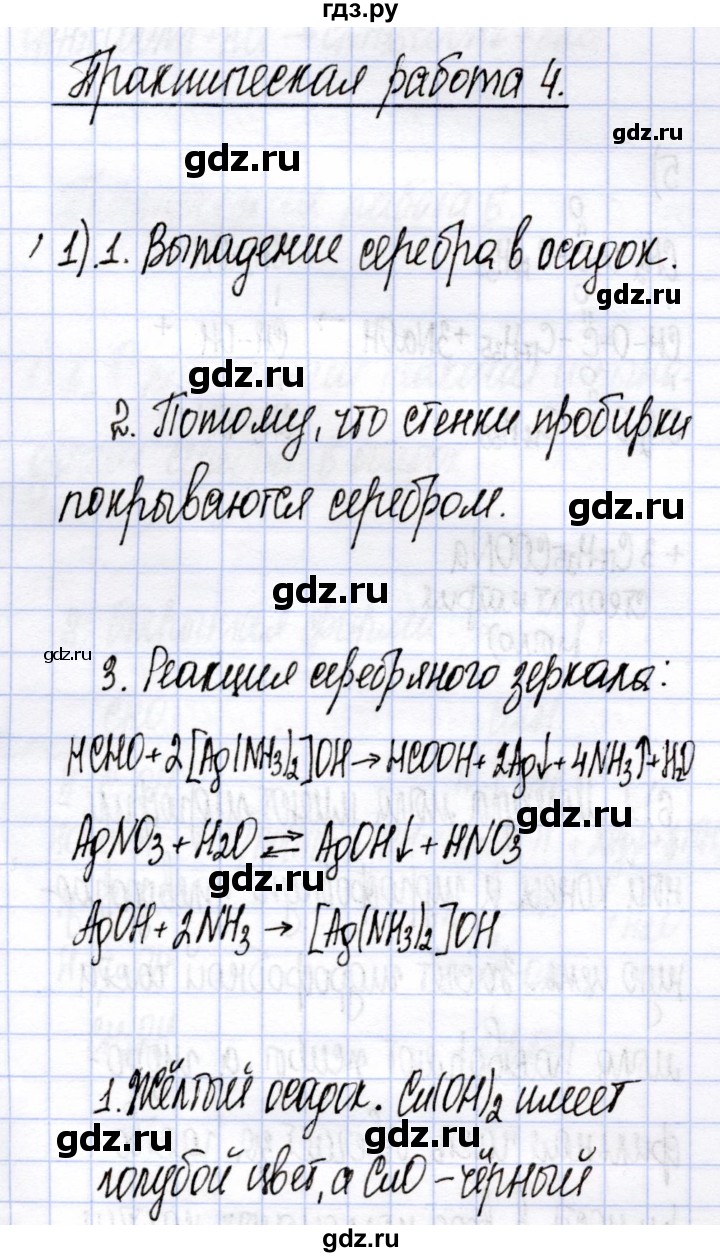 гдз.ру
Практическая работа 4.
gdz.ru
gdz.ru
1).1. Выпадение серебра в осадок.
gdz.ru
gdz.ru
2. Потому, что стенки пробирки
покрываются серебром.
gdz.ru
gdz.ru
gdz.ru
3. Реакция серебряного зеркала:
HCHO+2[Ag(NH3)2]OH→HCOOH+2Ag↓+4NH3↑+H2O
gdz.ru
AgNO3+H2O⇌AgOH↓+HNO3
gdz.ru
AgOH+2NH3→[Ag(NH3)2]OH
1. Жёлтый осадок. Cu(OH)2 имеет
gdz.ru
gdz.ru
голубой цвет, а CuO – чёрный
gdz.ru